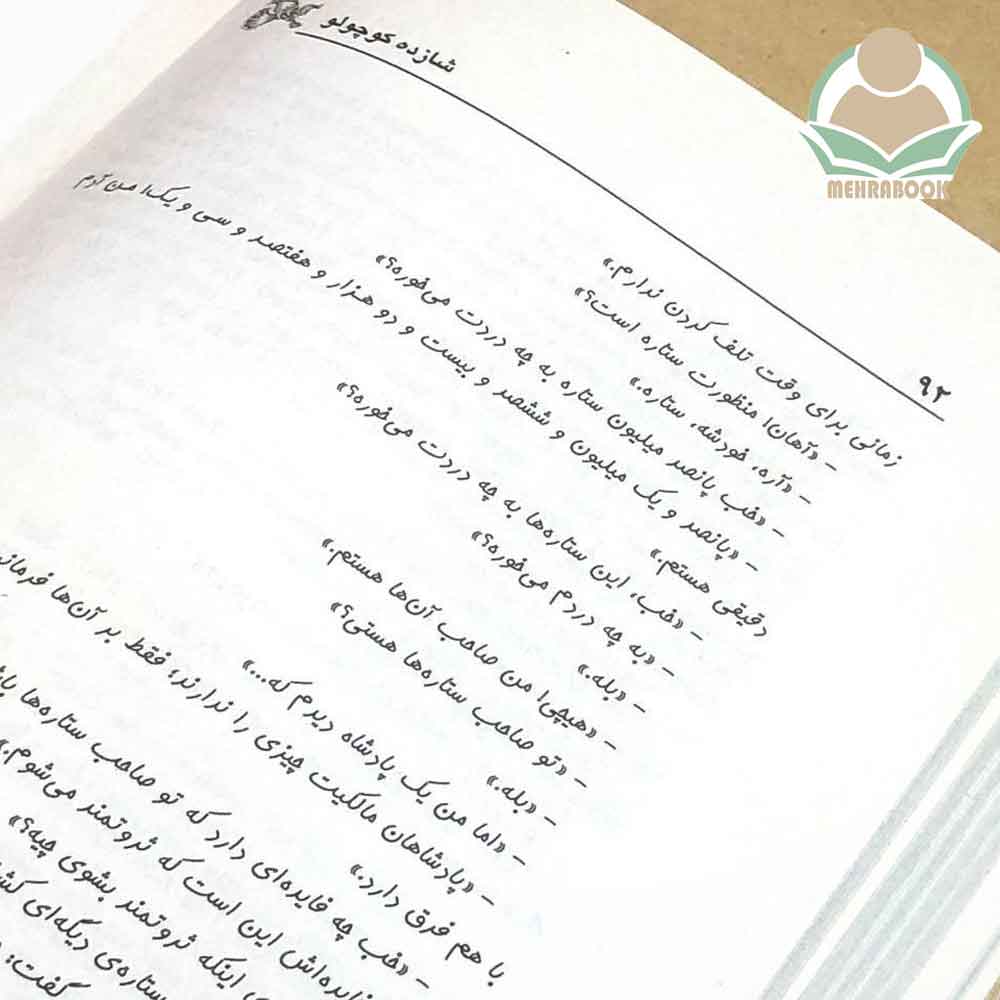 شازده کوچولو
۹۲
زمانی برای وقت تلف کردن ندارم.»
– «آهان! منظورت ستاره است؟»
– «آره، خودشه، ستاره.»
– «خب پانصد میلیون ستاره به چه دردت می‌خوره؟»
– «پانصد و یک میلیون و ششصد و بیست و دو هزار و هفتصد و سی و یک! من آدم
دقیقی هستم.»
– «خب، این ستاره‌ها به چه دردت می‌خوره؟»
– «به چه دردم می‌خوره؟»
– «بله.»
– «هیچی! من صاحب آن‌ها هستم.»
– «تو صاحب ستاره‌ها هستی؟»
– «بله.»
– «اما من یک پادشاه دیدم که...»
– «پادشاهان مالکیت چیزی را ندارند؛ فقط بر آن‌ها
با هم فرق دارد.»
– «خب چه فایده‌ای دارد که تو صاحب ستاره‌ها
این است که ثروتمند می‌شوم.»
اینکه ثروتمند بشوی چیه؟»
ستاره‌ی دیگه‌ای
گفت:
MEHRABOOK